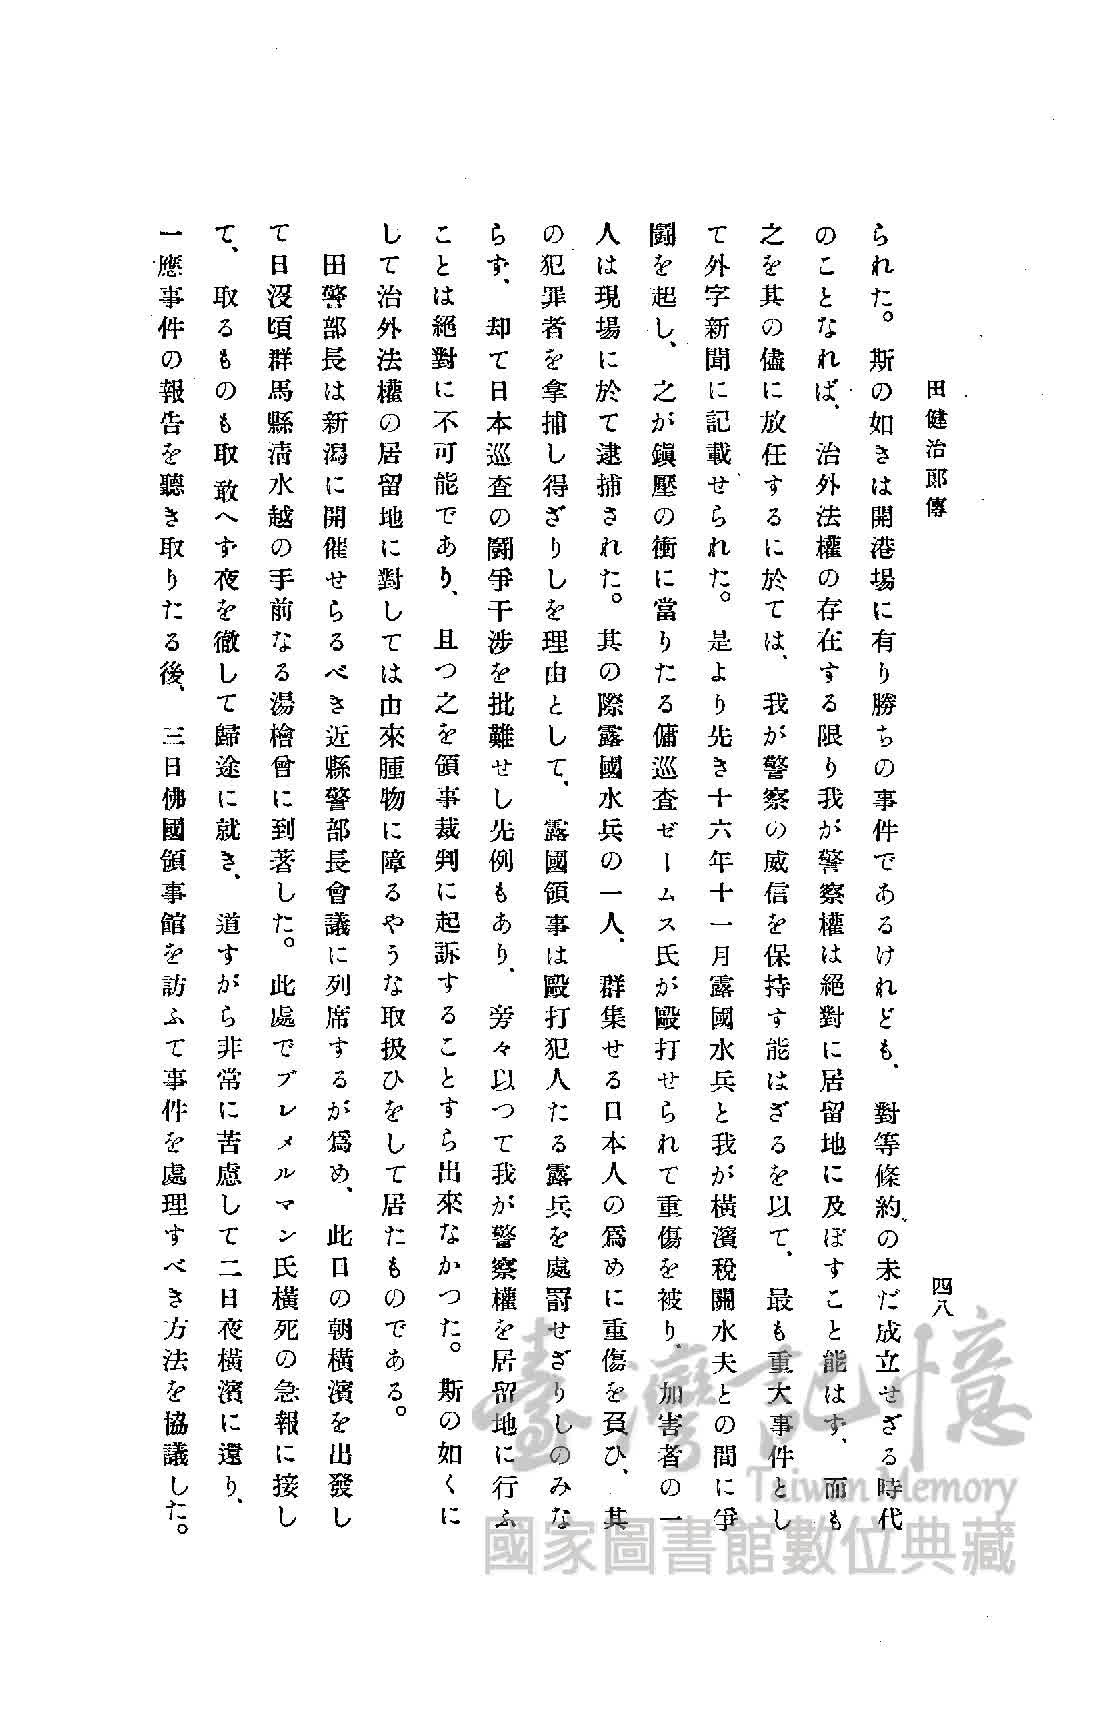 田健治郎傳
四八
られた。斯の如きは開港場に有り勝ちの事件であるけれども、對等條約の未だ成立せざる時代
のことなれば、治外法權の存在する限り我が警察權は絕對に居留地に及ぼすこと能はず、而も
之を其の儘に放任するに於ては、我が警察の威信を保持す能はざるを以て、最も重大事件とし
て外字新聞に記載せられた。是より先き十六年十一月露國水兵と我が橫濱稅關水夫との間に爭
鬪を起し、之が鎭壓の衝に當りたる傭巡査ゼームス氏が毆打せられて重傷を被り、加害者の一
人は現場に於て逮捕された。其の際露國水兵の一人、群集せる日本人の爲めに重傷を負ひ、其
の犯罪者を拿捕し得ざりしを理由として、露國領事は毆打犯人たる露兵を處罸せざりしのみな
らず、却て日本巡査の鬪爭干涉を批難せし先例もあり、旁々以つて我が警察權を居留地に行ふ
ことは絕對に不可能であり、且つ之を領事裁判に起訴することすら出來なかつた。斯の如くに
して治外法權の居留地に對しては由來腫物に障るやうな取扱ひをして居たものである。
田警部長は新潟に開催せらるべき近縣警部長會議に列席するが爲め、此日の朝橫濱を出發し
て日沒頃群馬縣淸水越の手前なる湯檜曾に到著した。此處でブレメルマン氏橫死の急報に接し
て、取るものも取敢へず夜を徹して歸途に就き、道すがら非常に苦慮して二日夜橫濱に還り、
一應事件の報告を聽き取りたる後、三日佛國領事館を訪ふて事件を處理すべき方法を協議した。
臺灣記憶
Taiwan Memory
國家圖書館數位典藏